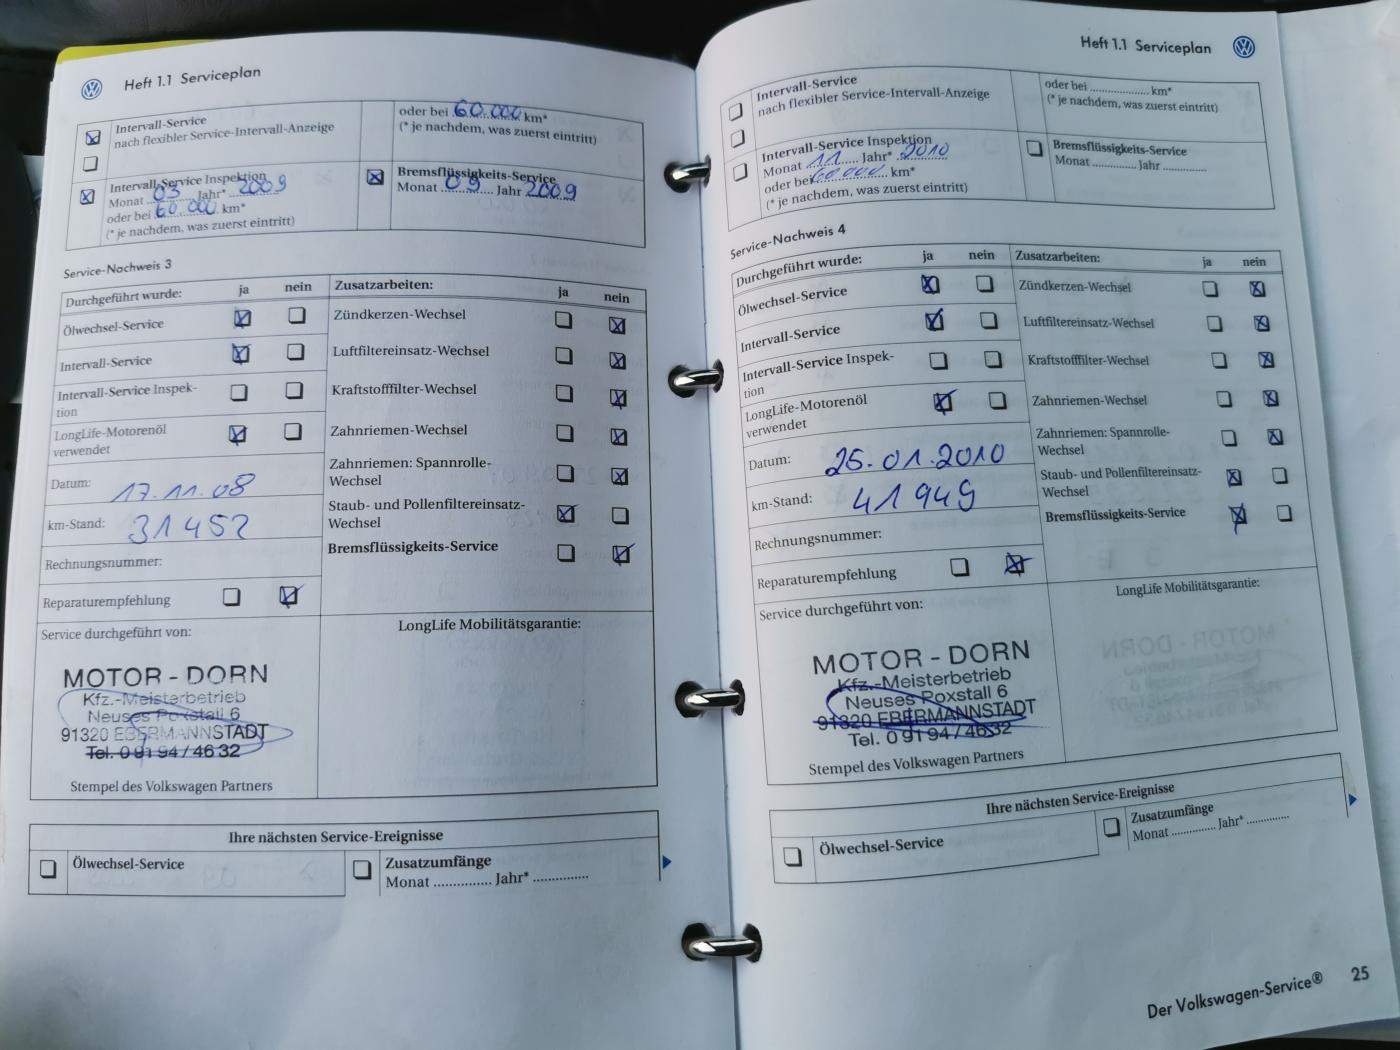 Heft 1.1 Serviceplan
Intervall-Service
nach flexibler Service-Intervall-Anzeige
oder bei 60.000 km*
(* je nachdem, was zuerst eintritt)
Intervall-Service Inspektion
Monat 03 Jahr* 2009
oder bei 60.000 km*
(* je nachdem, was zuerst eintritt)
Bremsflüssigkeits-Service
Monat 09 Jahr 2009
Service-Nachweis 3
Durchgeführt wurde: ja nein
Ölwechsel-Service
Intervall-Service
Intervall-Service Inspek-
tion
LongLife-Motorenöl
verwendet
Datum: 17.11.08
km-Stand: 31452
Rechnungsnummer:
Reparaturempfehlung
Zusatzarbeiten: ja nein
Zündkerzen-Wechsel
Luftfiltereinsatz-Wechsel
Kraftstofffilter-Wechsel
Zahnriemen-Wechsel
Zahnriemen: Spannrolle-
Wechsel
Staub- und Pollenfiltereinsatz-
Wechsel
Bremsflüssigkeits-Service
Service durchgeführt von:
MOTOR - DORN
Kfz.-Meisterbetrieb
Neuses Poxstall 6
91320 EBERMANNSTADT
Tel. 0 91 94 / 46 32
Stempel des Volkswagen Partners
LongLife Mobilitätsgarantie:
Ihre nächsten Service-Ereignisse
Ölwechsel-Service
Zusatzumfänge
Monat ............... Jahr* ...............
Heft 1.1 Serviceplan
Intervall-Service
nach flexibler Service-Intervall-Anzeige
oder bei .................. km*
(* je nachdem, was zuerst eintritt)
Intervall-Service Inspektion
Monat 11 Jahr* 2010
oder bei 60.000 km*
(* je nachdem, was zuerst eintritt)
Bremsflüssigkeits-Service
Monat ............. Jahr .............
Service-Nachweis 4
Durchgeführt wurde: ja nein
Ölwechsel-Service
Intervall-Service
Intervall-Service Inspek-
tion
LongLife-Motorenöl
verwendet
Datum: 25.01.2010
km-Stand: 41949
Rechnungsnummer:
Reparaturempfehlung
Zusatzarbeiten: ja nein
Zündkerzen-Wechsel
Luftfiltereinsatz-Wechsel
Kraftstofffilter-Wechsel
Zahnriemen-Wechsel
Zahnriemen: Spannrolle-
Wechsel
Staub- und Pollenfiltereinsatz-
Wechsel
Bremsflüssigkeits-Service
Service durchgeführt von:
MOTOR - DORN
Kfz.-Meisterbetrieb
Neuses Poxstall 6
91320 EBERMANNSTADT
Tel. 0 91 94 / 46 32
Stempel des Volkswagen Partners
LongLife Mobilitätsgarantie:
Ihre nächsten Service-Ereignisse
Ölwechsel-Service
Zusatzumfänge
Monat ............. Jahr* .............
Der Volkswagen-Service® 25